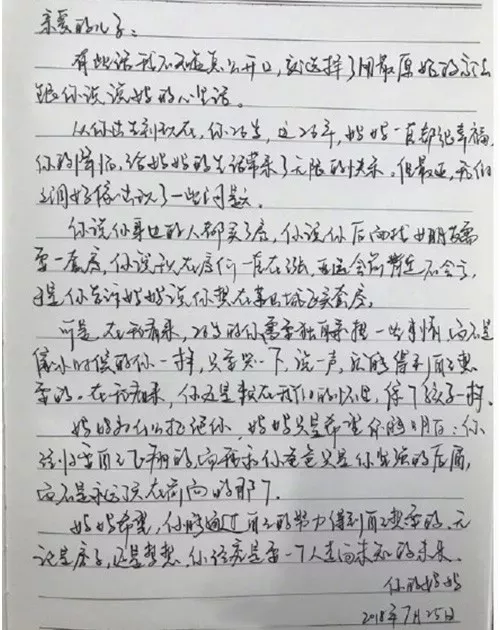 亲爱的儿子：
有些话我不知怎么开口，就选择了用最原始的方法
跟你说说妈妈的心里话。
从你出生到现在，你26岁，这26年，妈妈一直都很幸福，
你的降临，给妈妈的生活带来了无限的快乐。但最近，我们
之间好像出现了一些问题。
你说你身边的人都买了房，你说你后面找女朋友需
要一套房，你说现在房价一直在涨，亚运会前肯定不会亏，
于是你告诉妈妈说你想在买套房。
可是，在我看来，26岁的你需要独自承担一些事情，而不是
像小时候的你一样，只要哭一下，说一声，就能得到自己想
要的。在我看来，你还是躲在我们的怀里，像个孩子一样。
妈妈为什么拒绝你，妈妈只是希望你能明白：你
终归要自己飞翔的，而我和你爸爸只是你坚强的后盾，
而不是永远该在前面的那个。
妈妈希望，你能通过自己的努力得到自己想要的，无
论是房子，还是梦想，你终究是要一个人走向未知的未来。
你的妈妈
2018年7月25日